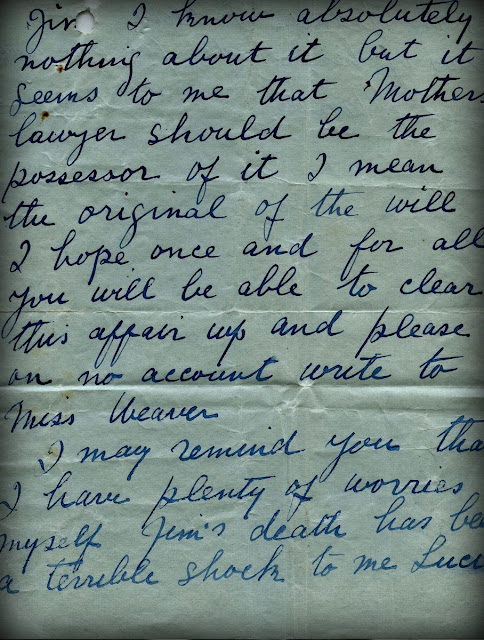 Jim I know absolutely
nothing about it but it
seems to me that Mothers
lawyer should be the
possessor of it I mean
the original of the will
I hope once and for all
you will be able to clear
this affair up and please
on no account write to
Miss Weaver
I may remind you tha
I have plenty of worries
myself Jim's death has bee
a terrible shock to me Luci